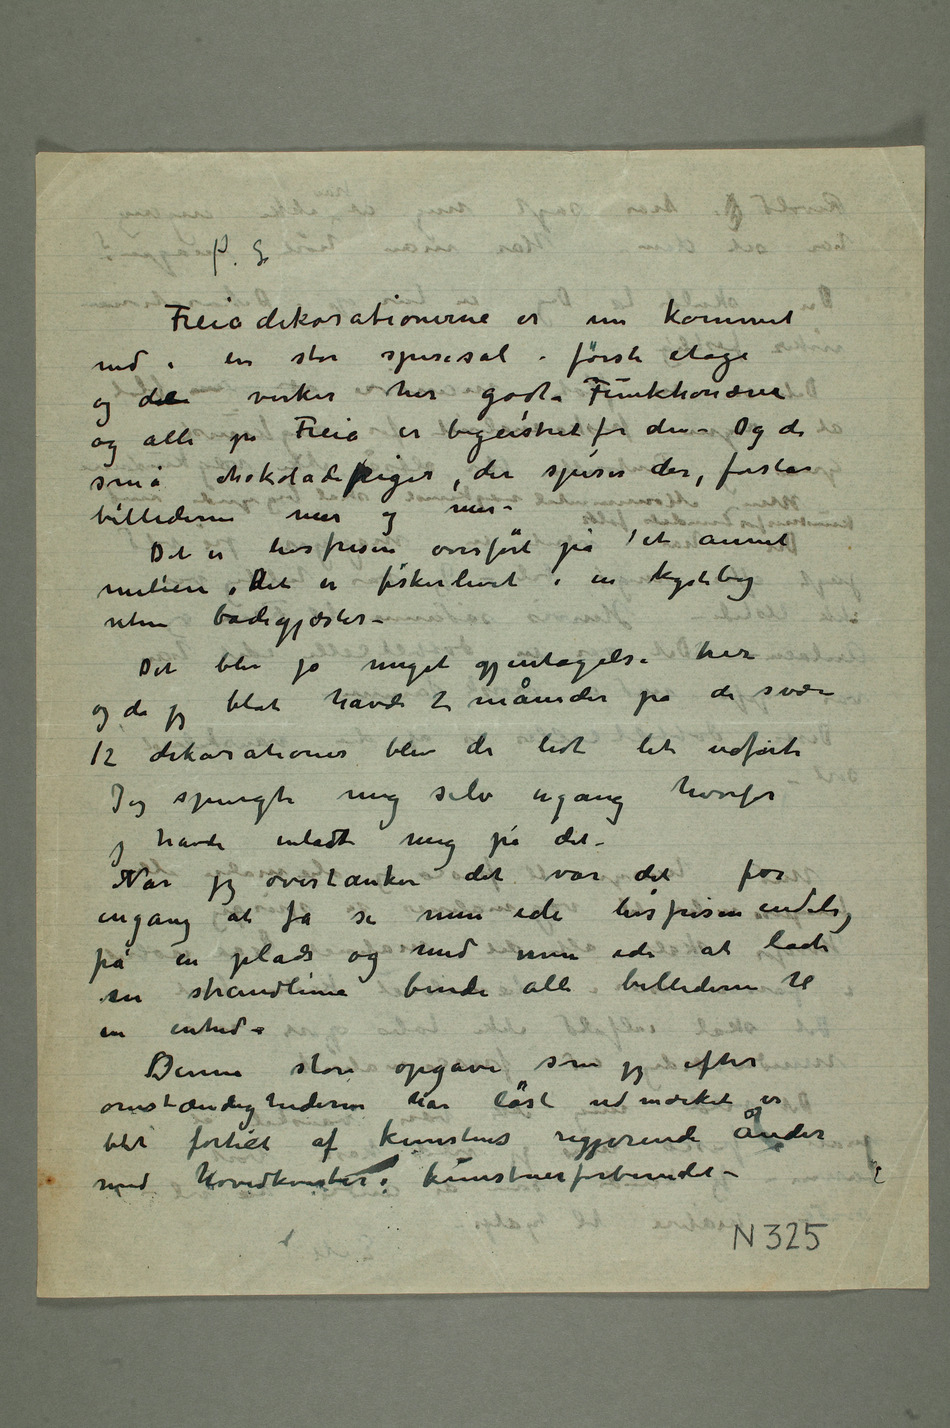 P. S
Freiadekorationerne er nu kommet
ned i en stor spisesal i første etage
og det virker her godt – Funktionærer
og alle på Freia er begeistret for den – Og de
små chokoladepiger, der spiser der, forstår
billederne mer og mer –
Det er livsfrisen overført på et annet
milieu, Det er fiskerlivet i en kystby
uten badegjæster –
Det blev jo meget gjentagelse her
og da jeg blot havde 2 måneder på de svære
12 dekorationer blev de lidt let udførte
Jeg spurgte mig selv engang hvorfor
jeg havde indladt mig på det –
Når jeg overtænker det var det for
engang at få se min ide livsfrisen endelig
på en plads og med min ide at lade
en strandlinie binde alle billederne til
en enhed –
Denne store opgave som jeg efter
omstændighederne har løst udmærket er
blet fortiet af kunstens regjerende ånder
med Hovedkvarter i kunstnerforbundet –
N 325